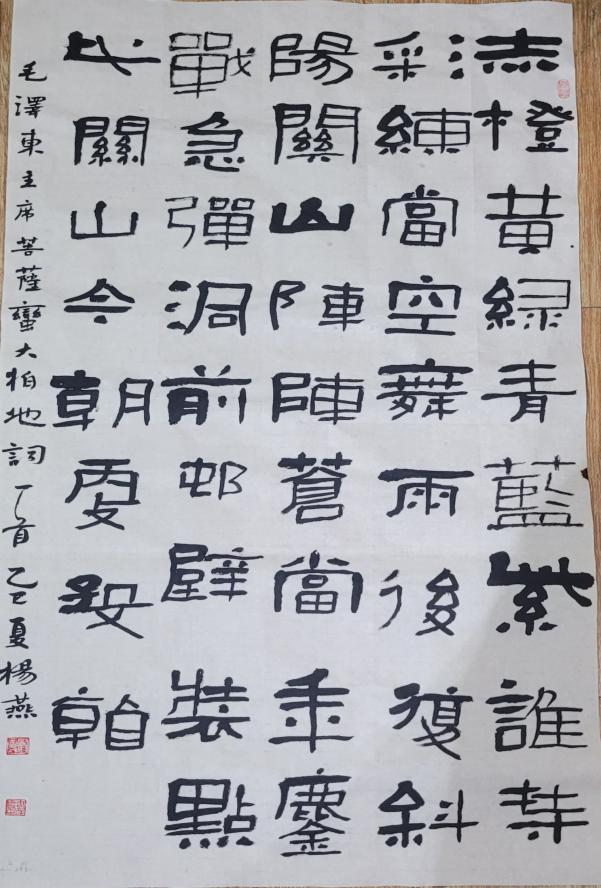 赤橙黃緑青藍紫誰持
彩練當空舞雨後復斜
陽關山陣陣蒼當年鏖
戰急彈洞前邨壁裝點
此關山今朝更好看
毛澤東主席菩薩蠻大柏地詞一首乙巳夏楊燕